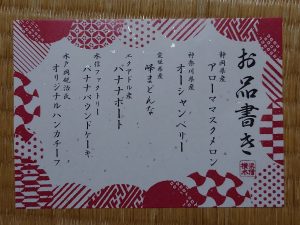 お品書き
静岡県産
アローママスクメロン
神奈川県産
オーシャンベリー
愛媛県産
峰まどんな
エクアドル産
バナナボート
水信ファクトリー
バナナパウンドケーキ
水戸岡鋭治氏
オリジナルハンカチーフ